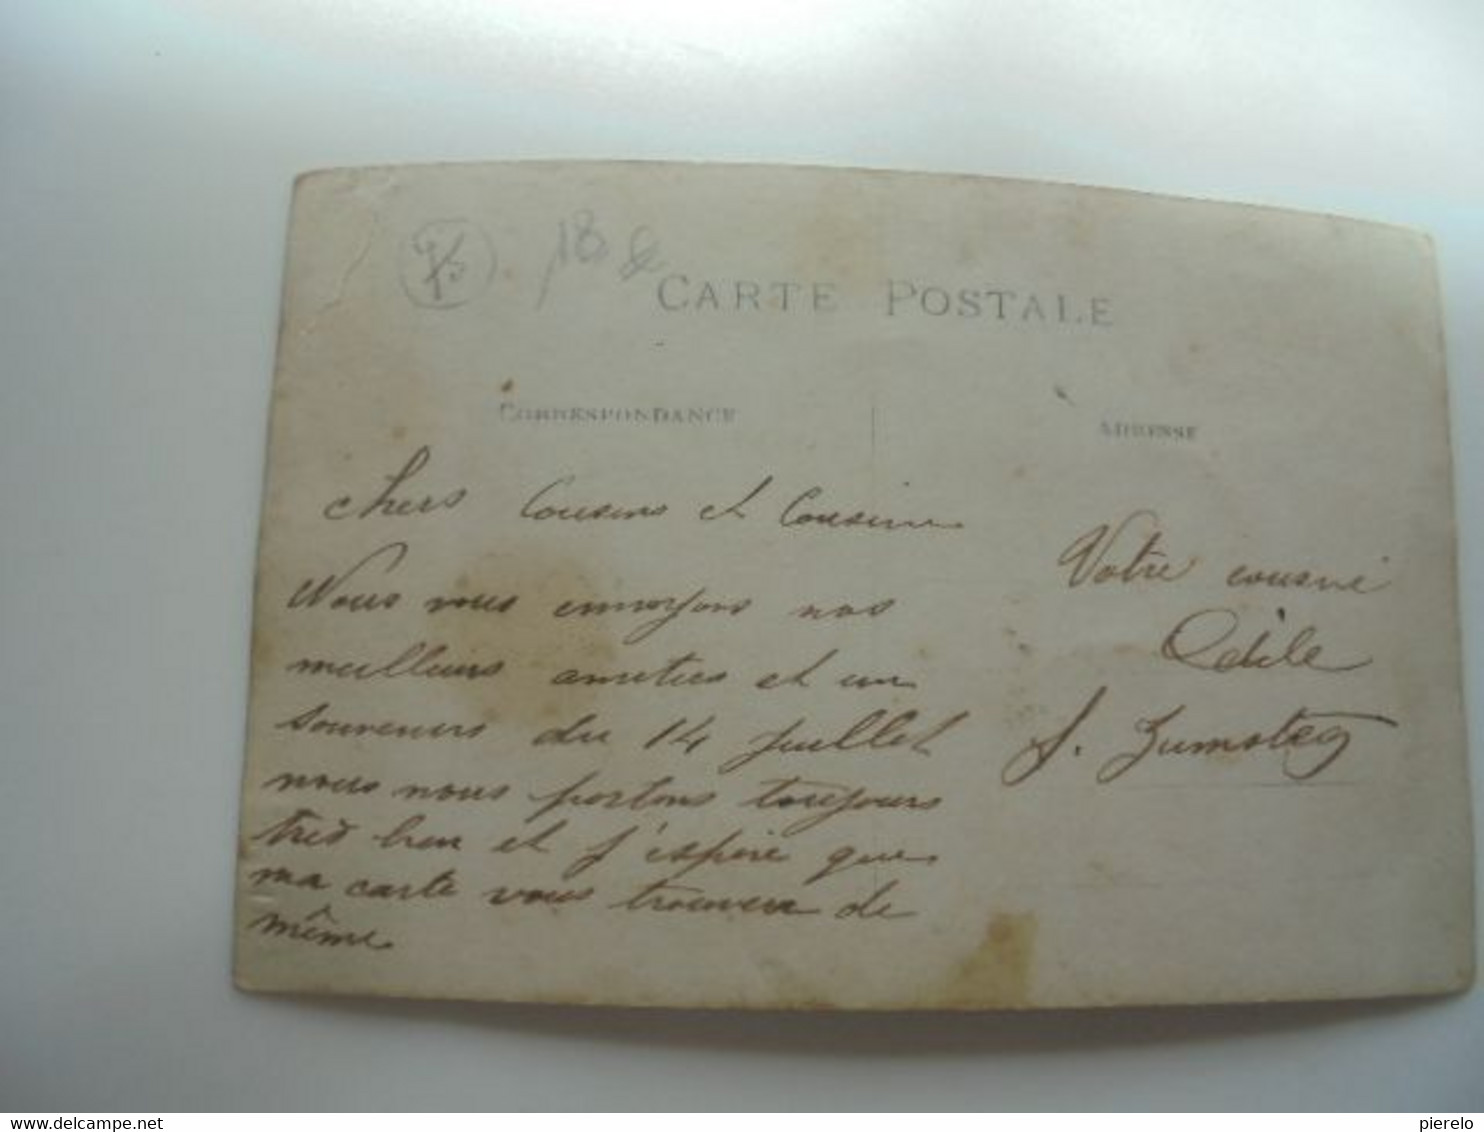 75 18
CARTE POSTALE
CORRESPONDANCE
ADRESSE
chers Cousins et Cousine
Nous vous envoyons nos
meilleurs amities et un
souvenirs du 14 juillet
nous nous portons toujours
très bien et j'espère que
ma carte vous trouvera de
même
Votre cousine
Odile
J. Zumsteg
delcampe.net
pierelo